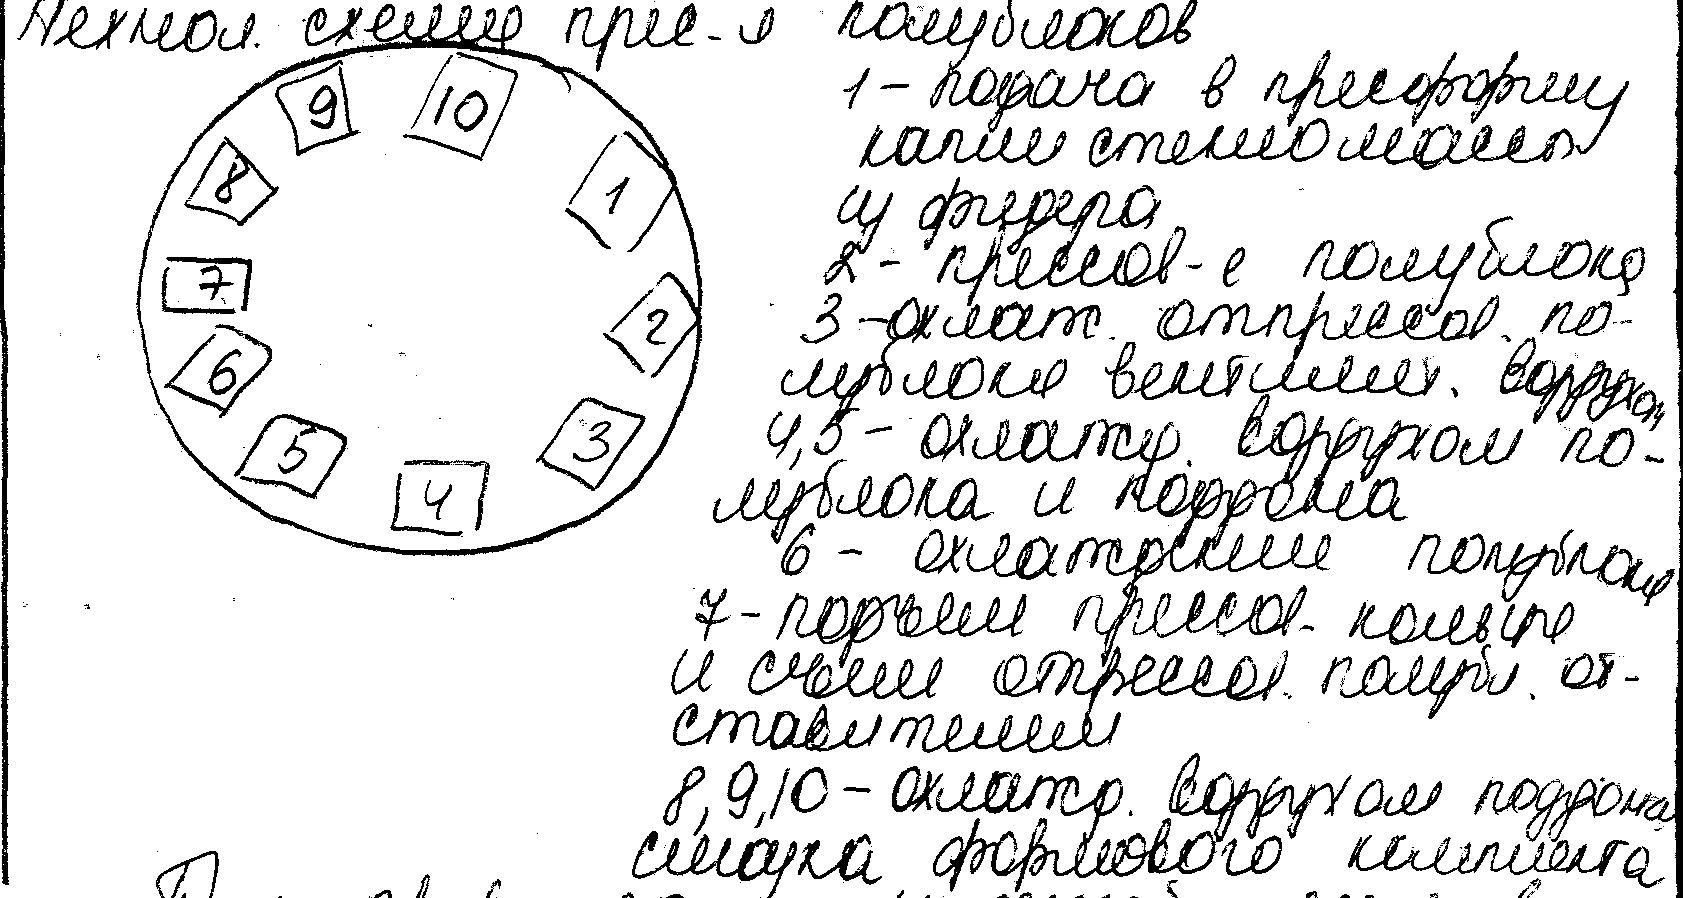 Технол. схема прес-я полублоков
9
10
8
1
7
2
6
3
5
4
1 – подача в пресформу
капли стекломассы
из фидера
2 – прессов-е полублока
3 – охлаж. отпрессов. по-
лублока вентилят. воздухом
4,5 – охлажд. воздухом по-
лублока и поддона
6 – охлаждение полублока
7 – подъем прессов. кольца
и съем отпрессов. полубл. от-
ставителем
8,9,10 – охлажд. воздухом поддона
смазка формового комплекта